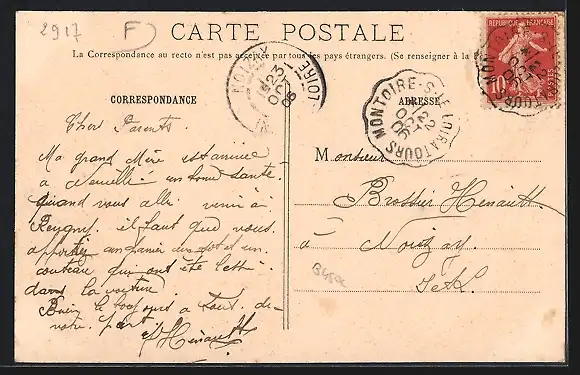 2917
F
CARTE POSTALE
La Correspondance au recto n'est pas acceptée par tous les pays étrangers. (Se renseigner à la
REPUBLIQUE FRANÇAISE
10
POSTES
23
OCT
06
LOIRE
MONTOIRE-S-LE-LOIR A TOURS
22
OCT
06
CORRESPONDANCE
ADRESSE
Cher Parents.
Ma grand Mère est arrivée
a Neuillé en bonne santé
quand vous allé venir à
Reugny. il faut que vous
un panier un pot et un
couteau qui ont été
dans la voiture.
a tous. de
notre part
Hénault
Monsieur
Brossier Henault
à Noizay
I et L.